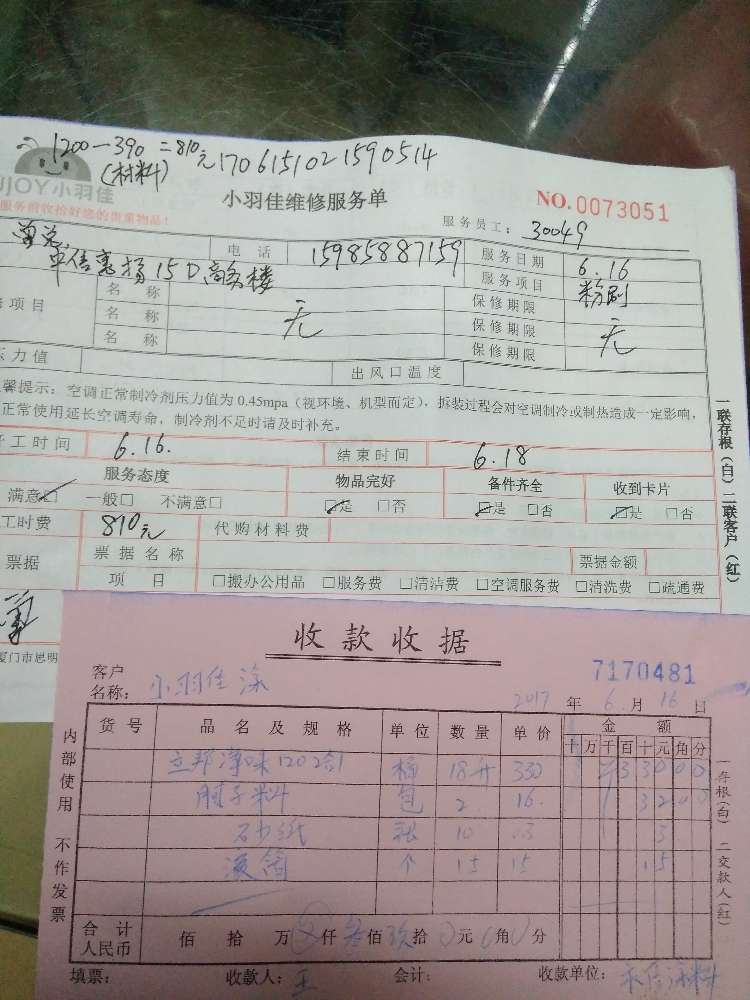 1200-390=810元1706151021590514
(材料)
JOY小羽佳
服务前收拾好您的贵重物品!
小羽佳维修服务单
NO.0073051
服务员工: 30049
电话 15985887159 服务日期 6.16
15D商务楼 服务项目 粉刷
项目 名称 无 保修期限 无
名称 保修期限
名称 保修期限
压力值 出风口温度
馨提示:空调正常制冷剂压力值为0.45mpa(视环境、机型而定),拆装过程会对空调制冷或制热造成一定影响,
正常使用延长空调寿命,制冷剂不足时请及时补充。
工时间 6.16. 结束时间 6.18
服务态度 物品完好 备件齐全 收到卡片
满意☑ 一般□ 不满意□ ☑是 □否 ☑是 □否 ☑是 □否
工时费 810元 代购材料费
票据 票据名称 票据金额
项目 □搬办公用品 □服务费 □清洁费 □空调服务费 □清洗费 □疏通费
厦门市思明
一联存根(白)二联客户(红)
收款收据
7170481
客户
名称: 小羽佳
2017年6月16日
货号 品名及规格 单位 数量 单价 金额
十万千百十元角分
立邦净味120 2合1 桶 18升 330 33000
腻子料 包 2 16. 3200
砂纸 张 10 0.3 3
滚筒 个 15 15
合计
人民币 佰 拾 万 仟 叁佰 玖拾 元 角 分
填票: 收款人:王 会计: 收款单位:
内部使用 不作发票
一存根(白) 二交款人(红)